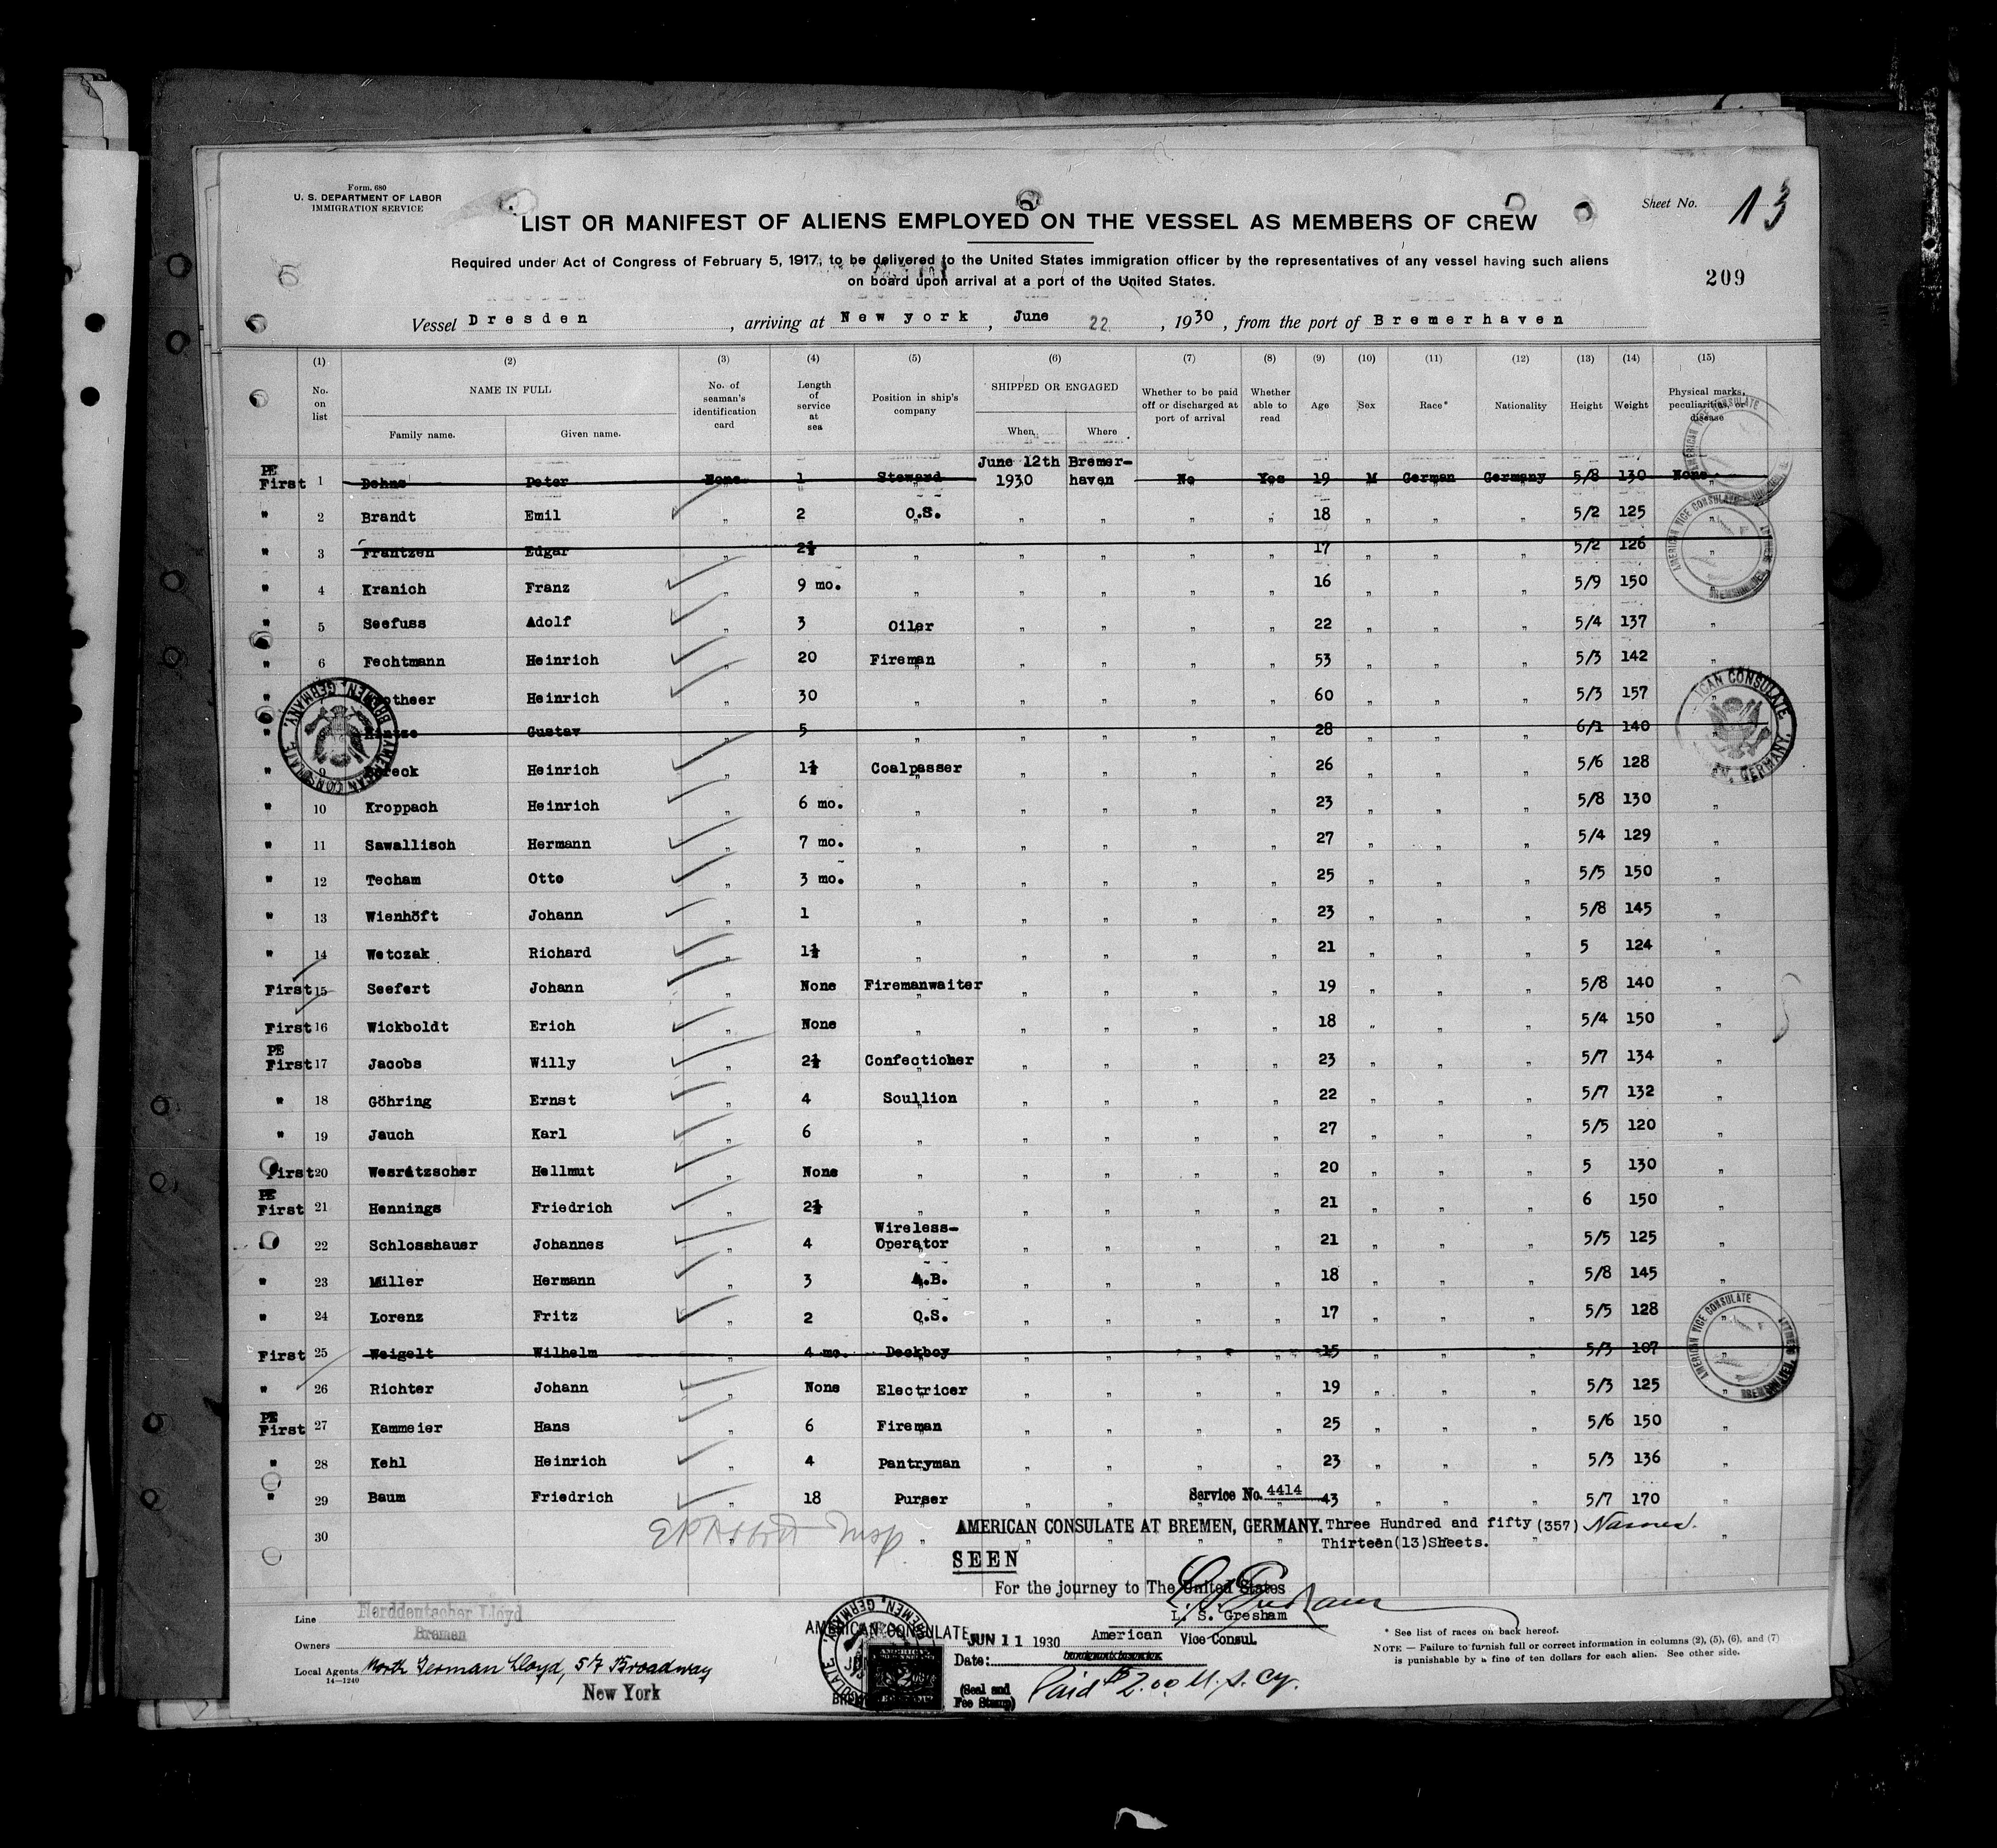 Form. 680
U. S. DEPARTMENT OF LABOR
IMMIGRATION SERVICE
Sheet No. 13
LIST OR MANIFEST OF ALIENS EMPLOYED ON THE VESSEL AS MEMBERS OF CREW
Required under Act of Congress of February 5, 1917, to be delivered to the United States immigration officer by the representatives of any vessel having such aliens
on board upon arrival at a port of the United States.
209
Vessel Dresden, arriving at New york, June 22, 1930, from the port of Bremerhaven
(1) (2) (3) (4) (5) (6) (7) (8) (9) (10) (11) (12) (13) (14) (15)
No. on list
NAME IN FULL
Family name. Given name.
No. of seaman's identification card
Length of service at sea
Position in ship's company
SHIPPED OR ENGAGED
When. Where
Whether to be paid off or discharged at port of arrival
Whether able to read
Age
Sex
Race*
Nationality
Height
Weight
Physical marks, peculiarities, or disease
PE First 1 Dehne Peter None 1 Steward June 12th 1930 Bremer-haven No Yes 19 M German Germany 5/8 130 None
" 2 Brandt Emil " 2 O.S. " " " " 18 " " " 5/2 125 "
" 3 Frantzen Edgar " 2½ " " " " " 17 " " " 5/2 126 "
" 4 Kranich Franz " 9 mo. " " " " " 16 " " " 5/9 150 "
" 5 Seefuss Adolf " 3 Oiler " " " " 22 " " " 5/4 137 "
" 6 Fechtmann Heinrich " 20 Fireman " " " " 53 " " " 5/3 142 "
" Heinrich " 30 " " " " " 60 " " " 5/3 157 "
" Gustav " 5 " " " " " 28 " " " 6/1 140 "
" Heinrich " 1½ Coalpasser " " " " 26 " " " 5/6 128 "
" 10 Kroppach Heinrich " 6 mo. " " " " " 23 " " " 5/8 130 "
" 11 Sawallisch Hermann " 7 mo. " " " " " 27 " " " 5/4 129 "
" 12 Techam Otto " 3 mo. " " " " " 25 " " " 5/5 150 "
" 13 Wienhöft Johann " 1 " " " " " 23 " " " 5/8 145 "
" 14 Wetczak Richard " 1½ " " " " " 21 " " " 5 124 "
First 15 Seefert Johann " None Firemanwaiter " " " " 19 " " " 5/8 140 "
First 16 Wickboldt Erich " None " " " " " 18 " " " 5/4 150 "
PE First 17 Jacobs Willy " 2½ Confectioner " " " " 23 " " " 5/7 134 "
" 18 Göhring Ernst " 4 Scullion " " " " 22 " " " 5/7 132 "
" 19 Jauch Karl " 6 " " " " " 27 " " " 5/5 120 "
First 20 Wesratzscher Hellmut " None " " " " " 20 " " " 5 130 "
PE First 21 Hennings Friedrich " 2½ " " " " " 21 " " " 6 150 "
" 22 Schlosshauer Johannes " 4 Wireless-Operator " " " " 21 " " " 5/5 125 "
" 23 Miller Hermann " 3 A.B. " " " " 18 " " " 5/8 145 "
" 24 Lorenz Fritz " 2 O.S. " " " " 17 " " " 5/5 128 "
First 25 Weigelt Wilhelm " 4 mo. Deckboy " " " " 15 " " " 5/3 107 "
" 26 Richter Johann " None Electricer " " " " 19 " " " 5/3 125 "
PE First 27 Kammeier Hans " 6 Fireman " " " " 25 " " " 5/6 150 "
" 28 Kehl Heinrich " 4 Pantryman " " " " 23 " " " 5/3 136 "
" 29 Baum Friedrich " 18 Purser " " Service No. 4414 43 " " " 5/7 170 "
30
Insp
AMERICAN CONSULATE AT BREMEN, GERMANY. Three Hundred and fifty (357) Names.
Thirteen(13)Sheets.
SEEN
For the journey to The United States
L. S. Gresham
American Vice Consul.
AMERICAN CONSULATE
JUN 11 1930
Date:
(Seal and Fee Stamp)
Paid $2.00 U. S. Cy.
Line Norddeutscher Lloyd
Bremen
Owners
Local Agents North German Lloyd, 57 Broadway
14—1240
New York
* See list of races on back hereof.
NOTE — Failure to furnish full or correct information in columns (2), (5), (6), and (7)
is punishable by a fine of ten dollars for each alien. See other side.
AMERICAN CONSULATE BREMEN, GERMANY.
AMERICAN VICE CONSULATE